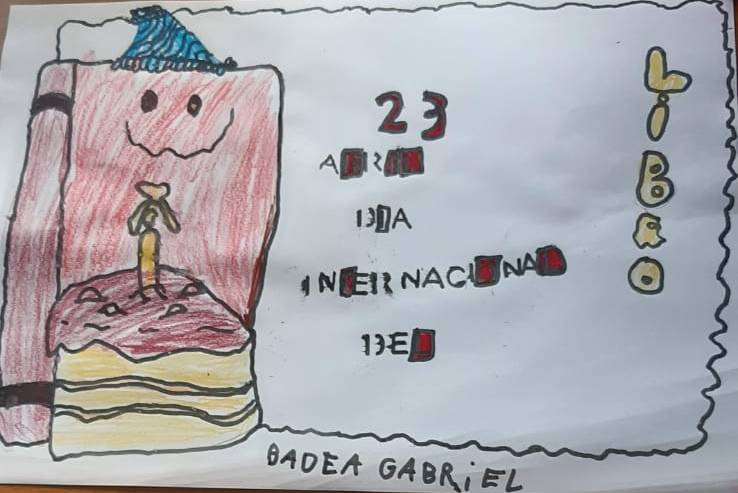 23
ABRIL
DIA
INTERNACIONAL
DEL
LiBRO
BADEA GABRiEL